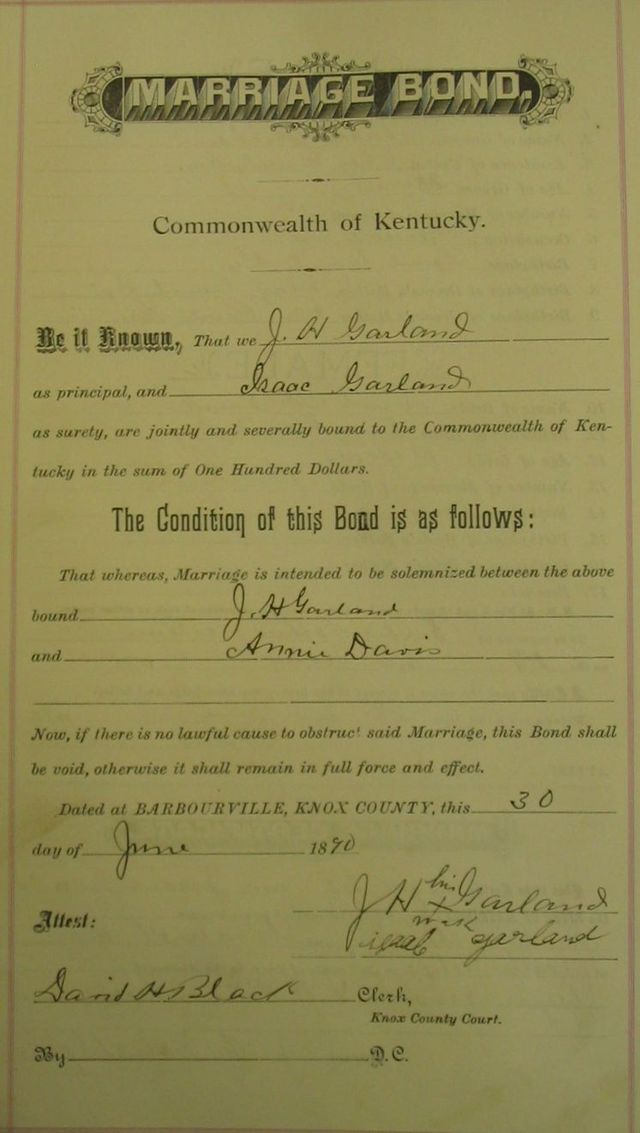 MARRIAGE BOND.
Commonwealth of Kentucky.
Be it Known, That we J. H Garland
as principal, and Isaac Garland
as surety, are jointly and severally bound to the Commonwealth of Ken-
tucky in the sum of One Hundred Dollars.
The Condition of this Bond is as follows:
That whereas, Marriage is intended to be solemnized between the above
bound J. H Garland
and Annie Davis
Now, if there is no lawful cause to obstruct said Marriage, this Bond shall
be void, otherwise it shall remain in full force and effect.
Dated at BARBOURVILLE, KNOX COUNTY, this 30
day of June 1890
J H his x Garland
mark
Attest: Isaac garland
David H Black Clerk,
Knox County Court.
By D. C.